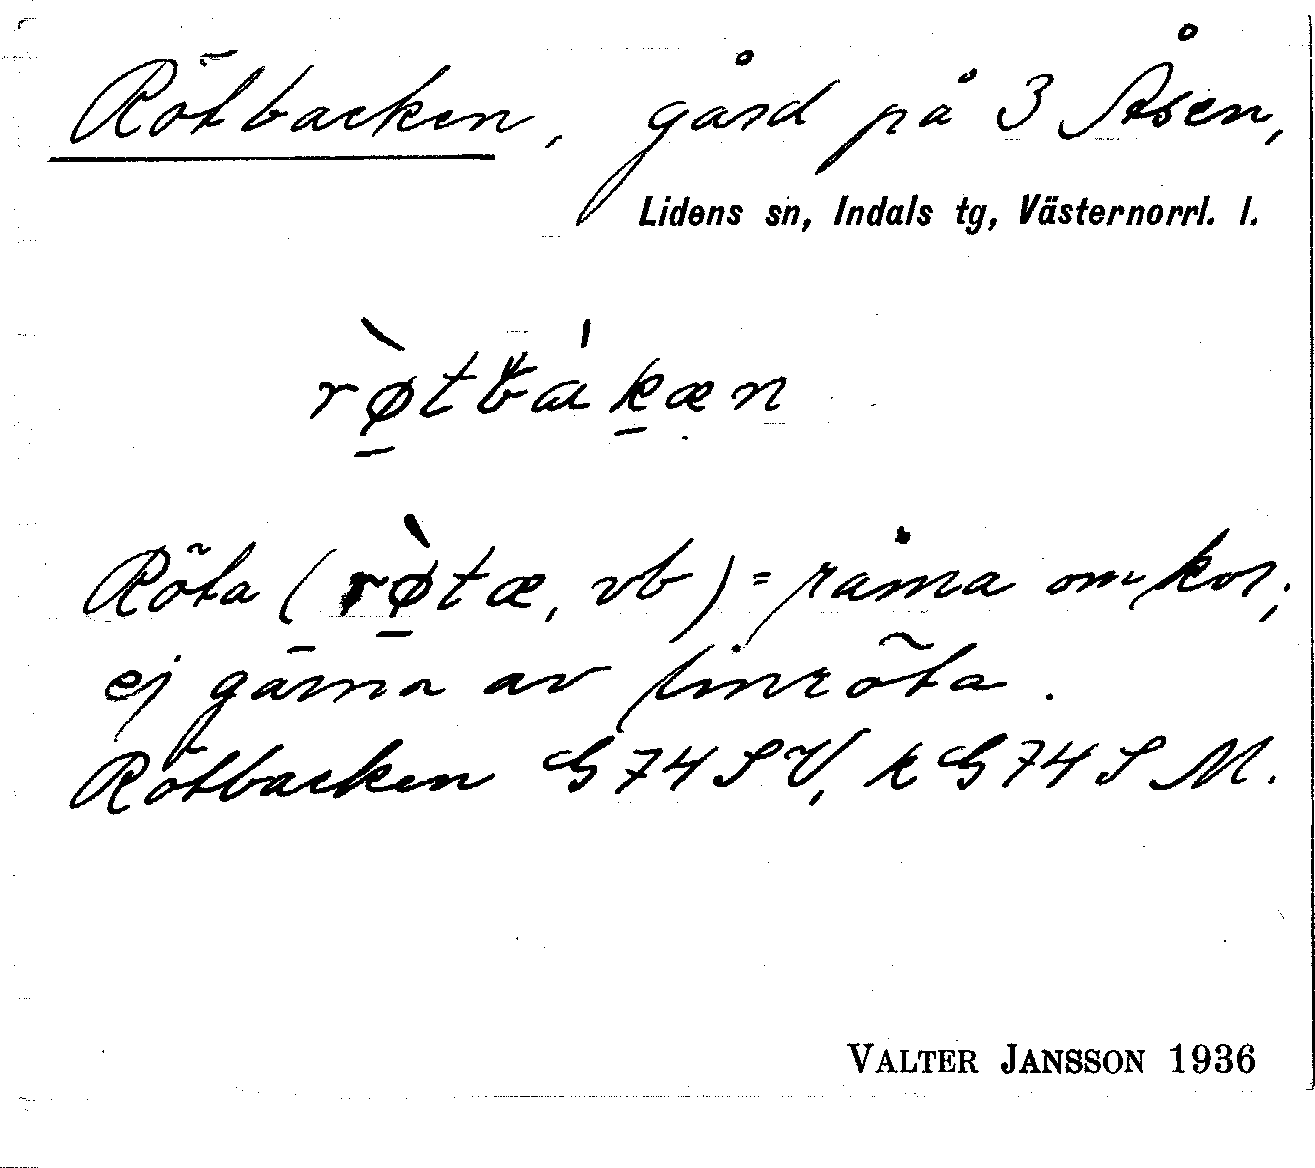 Rötbacken, gård på 3 Åsen,
Lidens sn, Indals tg, Västernorrl. l.
rø̀tbákæn
Röta (rø̀tæ, vb) = råma om kor;
ej gärna av linröta.
Rötbacken G 74 S V, k G 74 S M.
VALTER JANSSON 1936